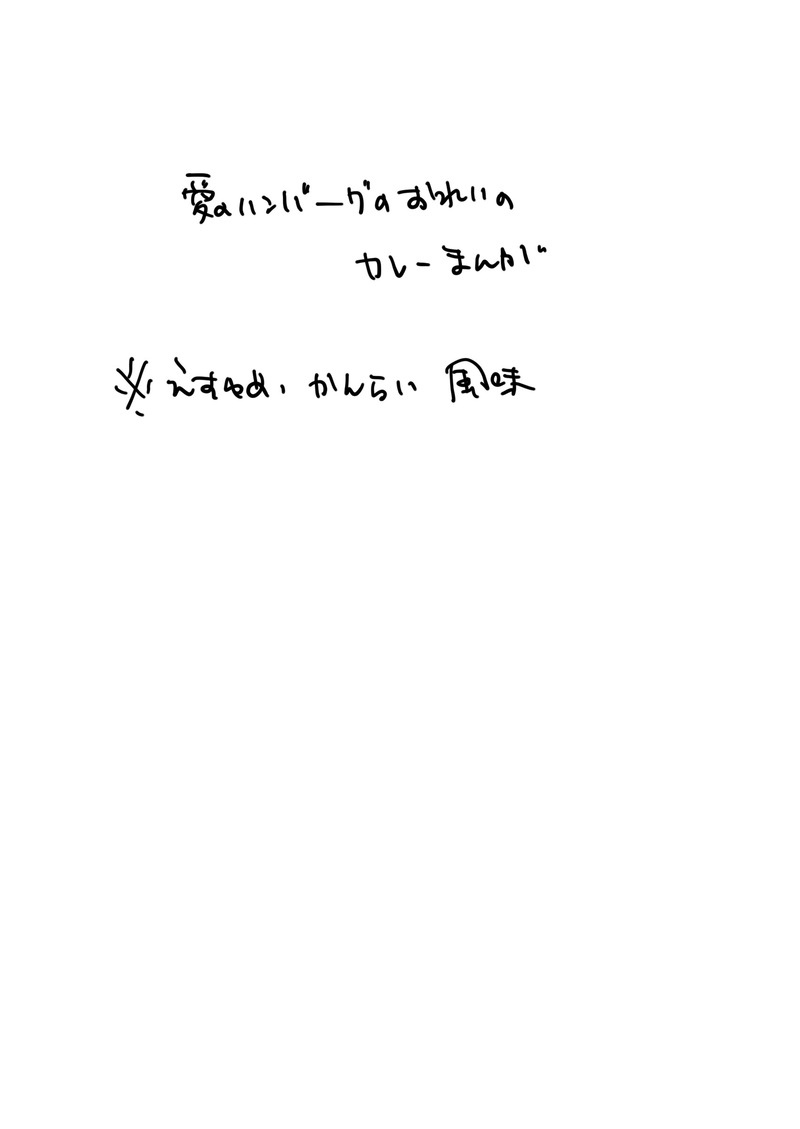 愛のハンバーグのおれいの
カレーまんが
※ かんらい 風味